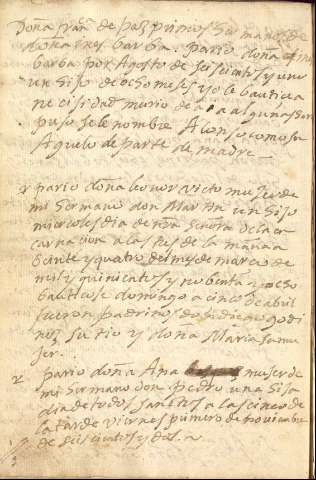 Doña fran.ca de paz primos hermanos de
Doña ines barba. pario doña ines
barba por Agosto de seiscientos y uno
un hijo de ocho meses y se bautiça
ne cisidad murio de a algunas
puso sele nombre Alonso como su
Aguelo de parte de madre
pario doña leonor vict muger de
mi hermano don Martin un hijo
miercoles dia de nra señora de la en
carnacion a las seis de la mañana
beinte y quatro del mes de março de
mil y quinientos y nobenta y ocho
bauticose domingo a cinco de abril
fueron padrinos don diego godi
nez su tio y doña Maria su mu
jer.
pario doña Ana muger de
mi hermano don pedro una hija
dia de todos santos a las cinco de
la tarde viernes primero de noviembre
de seiscientos y dos.